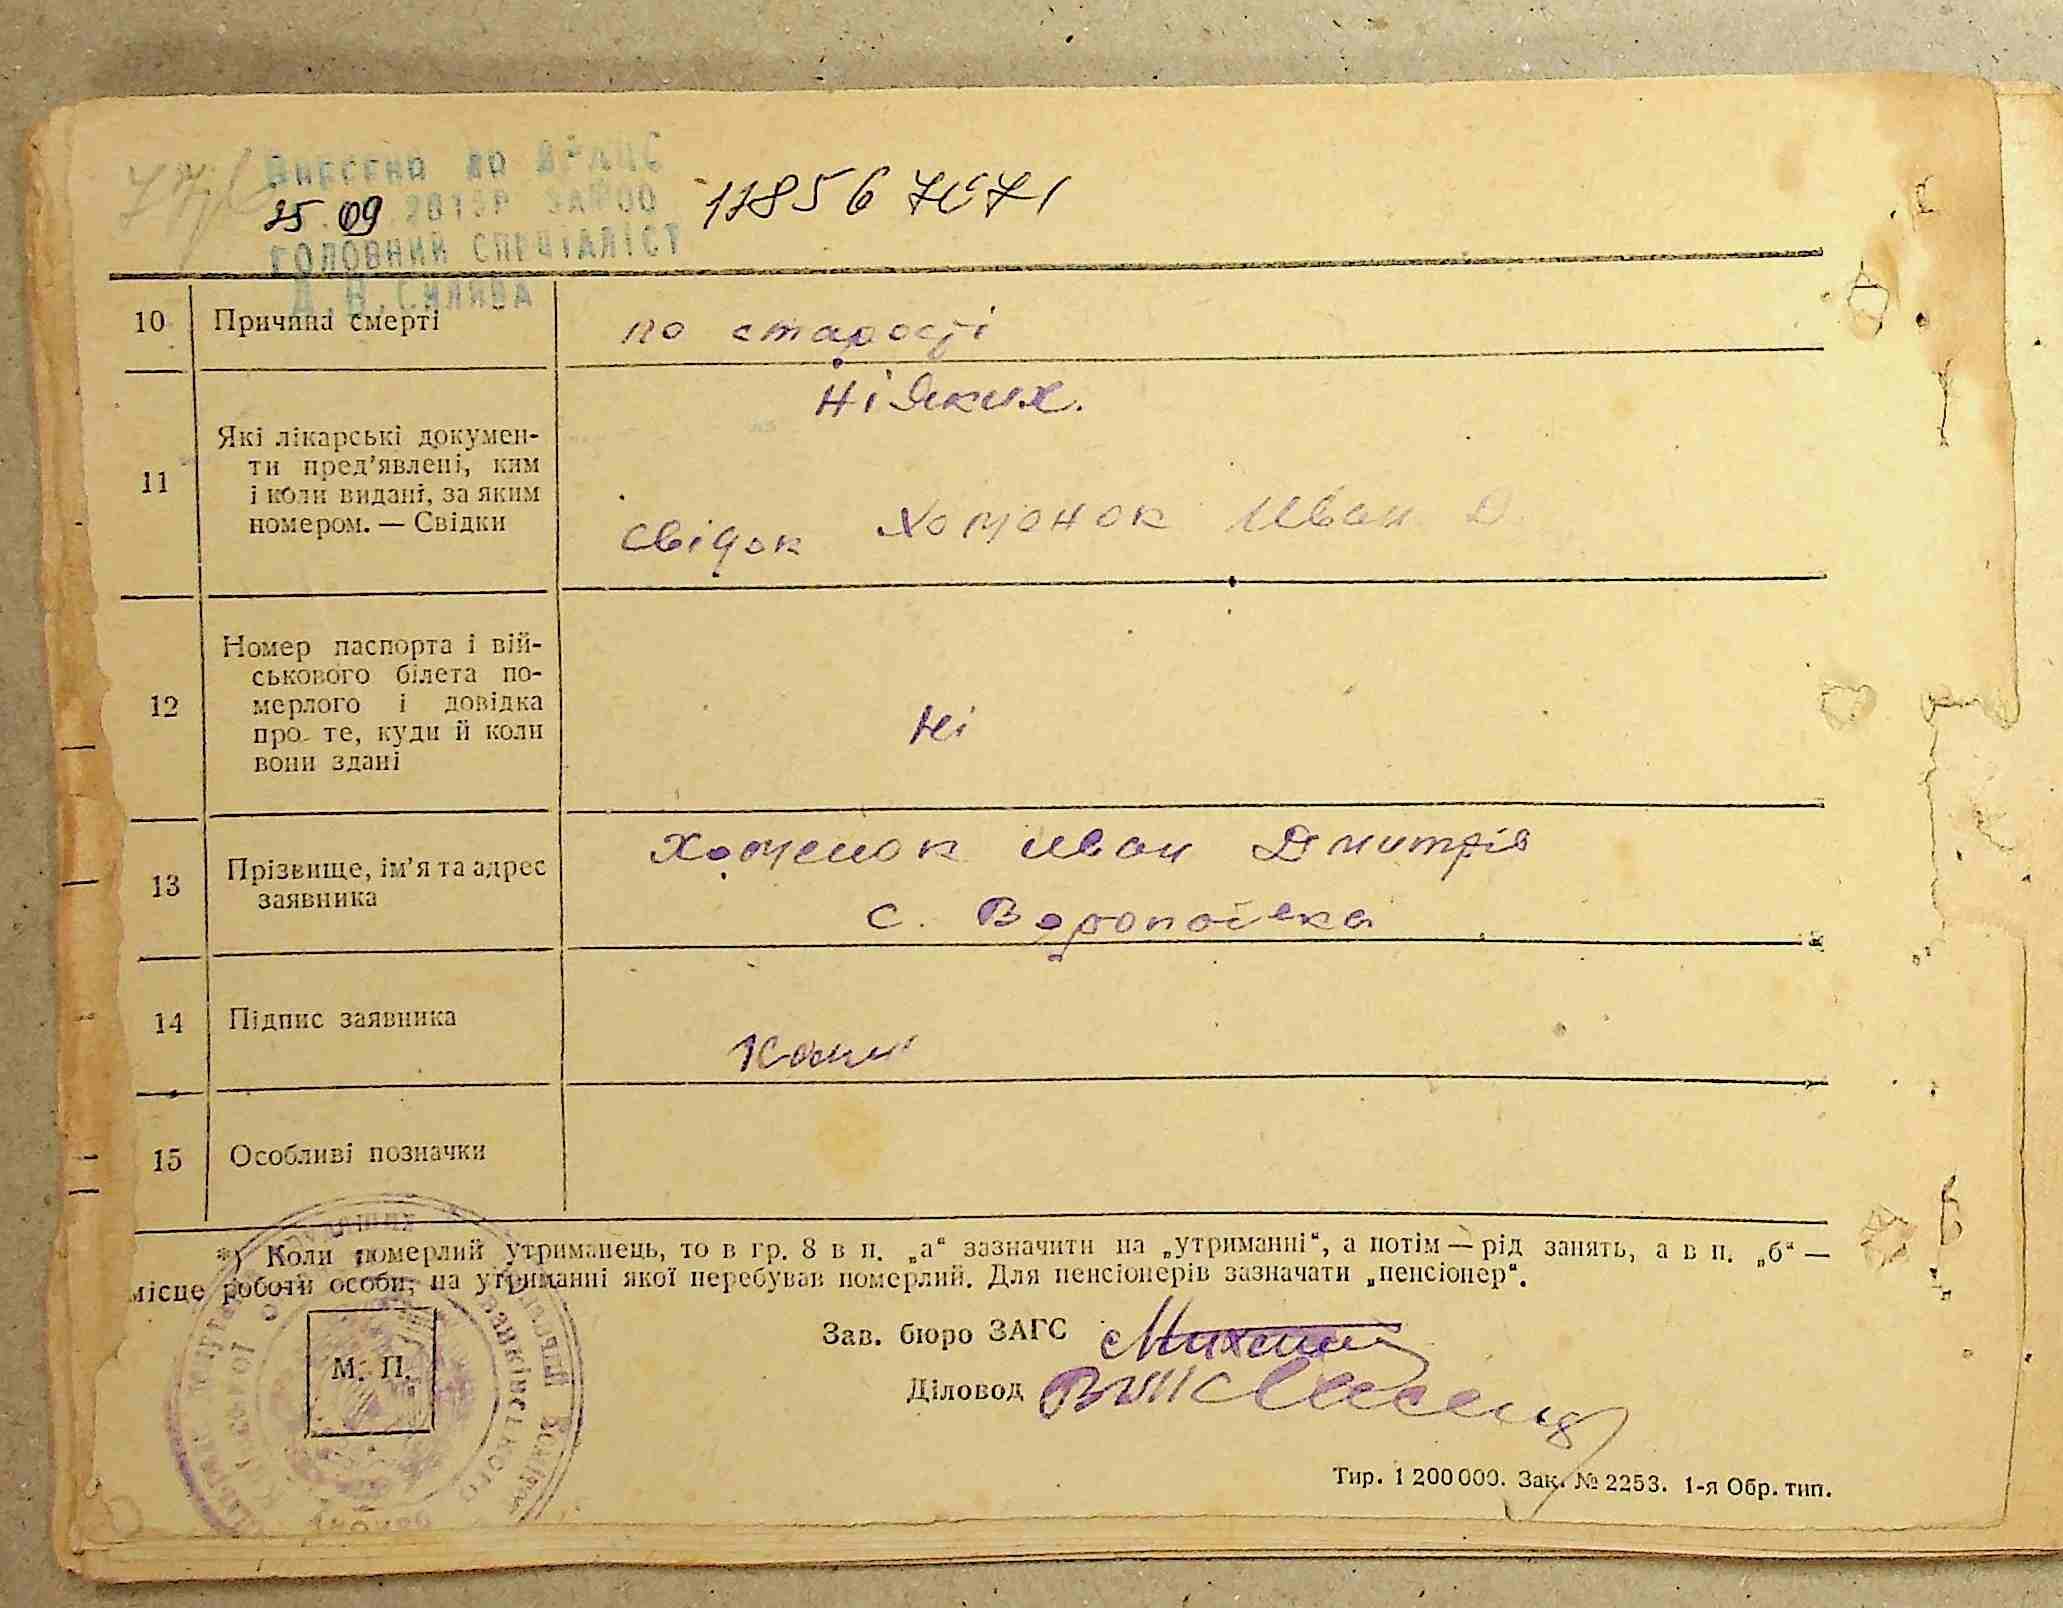 Внесено до ДРАЦС
25.09.2015Р ЗА №00 118567071
ГОЛОВНИЙ СПЕЦІАЛІСТ
10 Причина смерті по старості
11 Які лікарські докумен-
ти пред’явлені, ким
і коли видані, за яким
номером. — Свідки
Ніяких.
Свідок Хоменок Иван Д
12 Номер паспорта і вій-
ськового білета по-
мерлого і довідка
про те, куди й коли
вони здані
Ні
13 Прізвище, ім’я та адрес
заявника
Хоменок Иван Дмитрів
с. Воропаївка
14 Підпис заявника
15 Особливі позначки
*) Коли померлий утриманець, то в гр. 8 в п. „а“ зазначити на „утриманні“, а потім — рід занять, а в п. „б“ —
місце роботи особи, на утриманні якої перебував померлий. Для пенсіонерів зазначати „пенсіонер“.
М. П.
Зав. бюро ЗАГС
Діловод
Тир. 1 200 000. Зак. № 2253. 1-я Обр. тип.